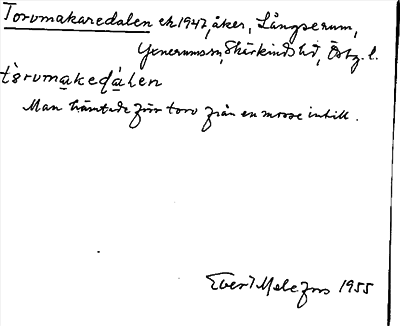 Torvmakaredalen ek. 1947, åker, Långserum,
Yxnerums sn, Skärkinds hd, Östg. l.
tòrvmakedálen
Man hämtade förr torv från en mosse intill.
Evert Melefors 1955